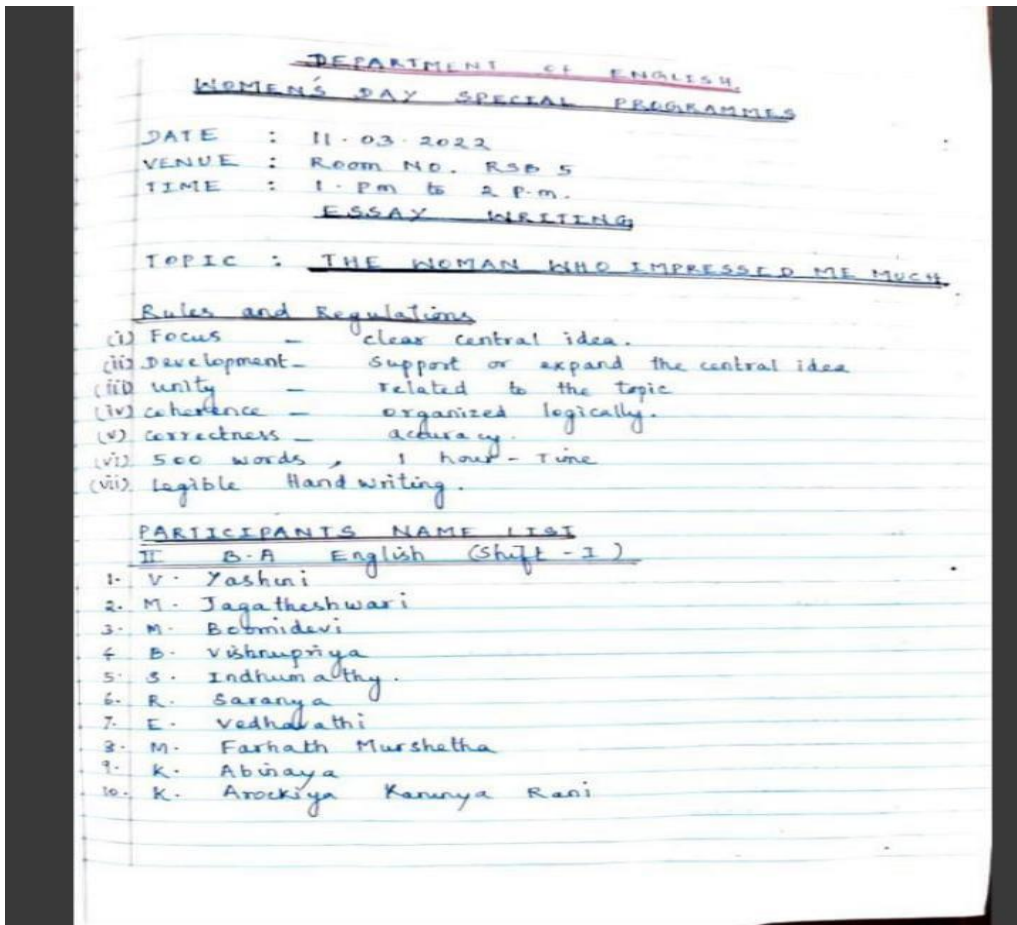 DEPARTMENT of ENGLISH.
WOMEN'S DAY SPECIAL PROGRAMMES
DATE : 11.03.2022
VENUE : Room No. RSB 5
TIME : 1. Pm to 2 P.m.
ESSAY WRITING
TOPIC : THE WOMAN WHO IMPRESSED ME MUCH.
Rules and Regulations
(i) Focus - clear central idea.
(ii) Development - Support or expand the central idea
(iii) unity - related to the topic
(iv) coherence - organized logically.
(v) correctness - accuracy.
(vi) 500 words, 1 hour - Time
(vii) Legible Hand writing.
PARTICIPANTS NAME LIST
II B.A English (Shift - I)
1. V. Yashini
2. M. Jagatheshwari
3. M. Boomidevi
4 B. Vishnupriya
5. S. Indhumathy.
6. R. Saranya
7. E. Vedhavathi
8. M. Farhath Murshetha
9. K. Abinaya
10. K. Arockiya Karunya Rani